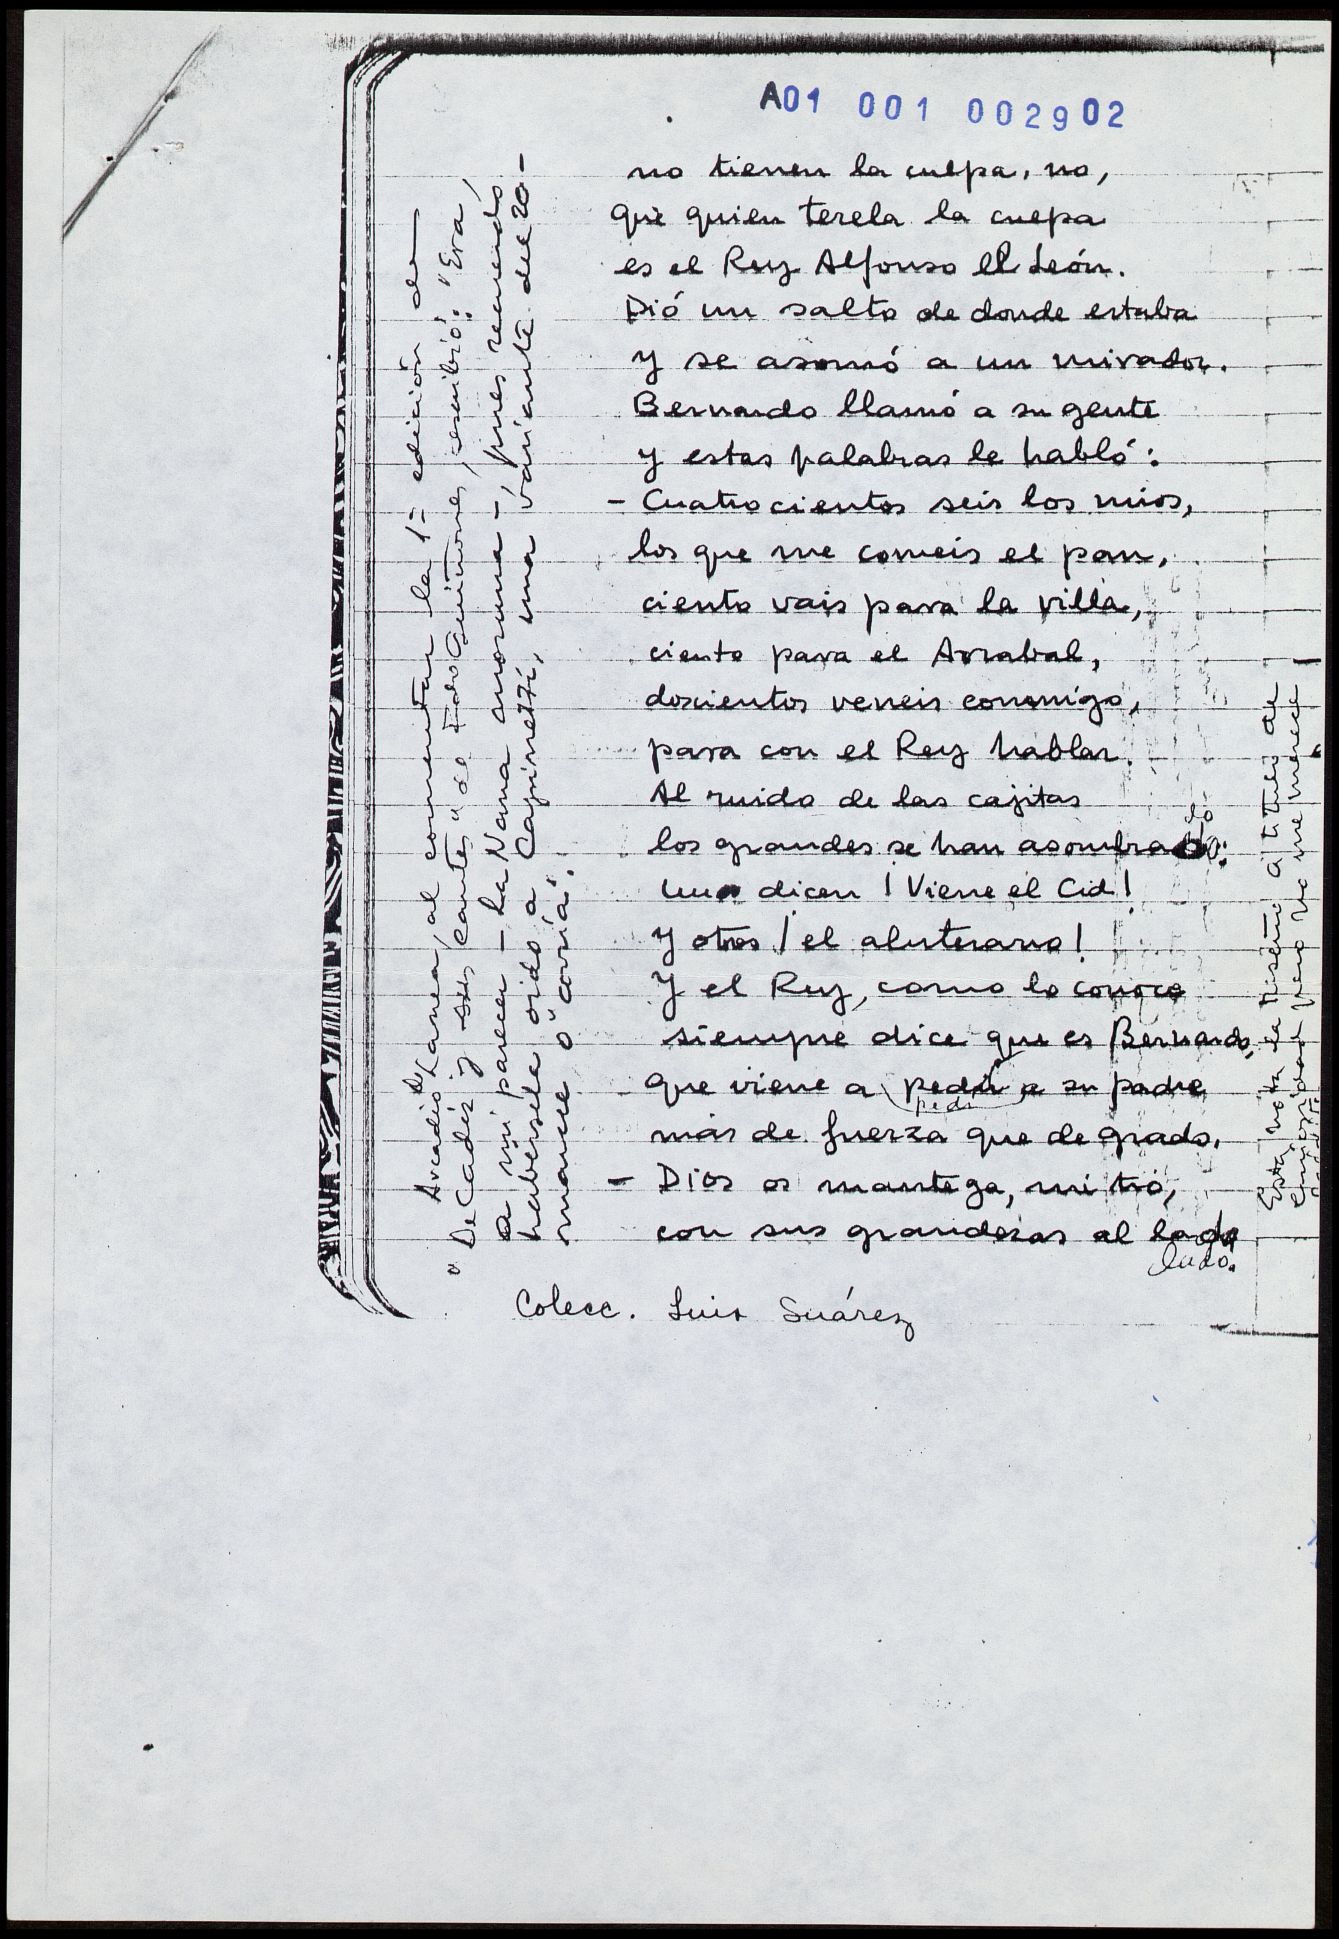 A01 001 002902
no tienen la culpa, no,
que quien terela la culpa
es el Rey Alfonso el León.
Dió un salto de donde estaba
y se asomó a un mirador.
Bernardo llamó a su gente
y estas palabras le habló:
- Cuatrocientos seis los mios,
los que me comeis el pan,
ciento vais para la villa,
ciento para el Arrabal,
doscientos veneis conmigo,
para con el Rey hablar.
Al ruido de las cajitas
los grandes se han asombrado:
uno dicen ¡Viene el Cid!
y otros ¡el aluterano!
Y el Rey, como lo conoce
siempre dice que es Bernardo,
que viene a pedir a su padre
pedi
más de fuerza que de grado.
- Dios os mantega, mi tío,
con sus grandezas al lado
lado.
Colecc. Luis Suárez
Arcadio Larrea, al comentar la 1ª edición de
"De Cadiz y sus cantes" de Fdo Quiñones, escribió: "Era,
a mi parecer - La Nana anonima -, pues recuerdo
habersela oido a Capinetti, una variante del ro-
mance o "corría".
Esta nota la reseño a titulo de
curiosidad pero no me merece